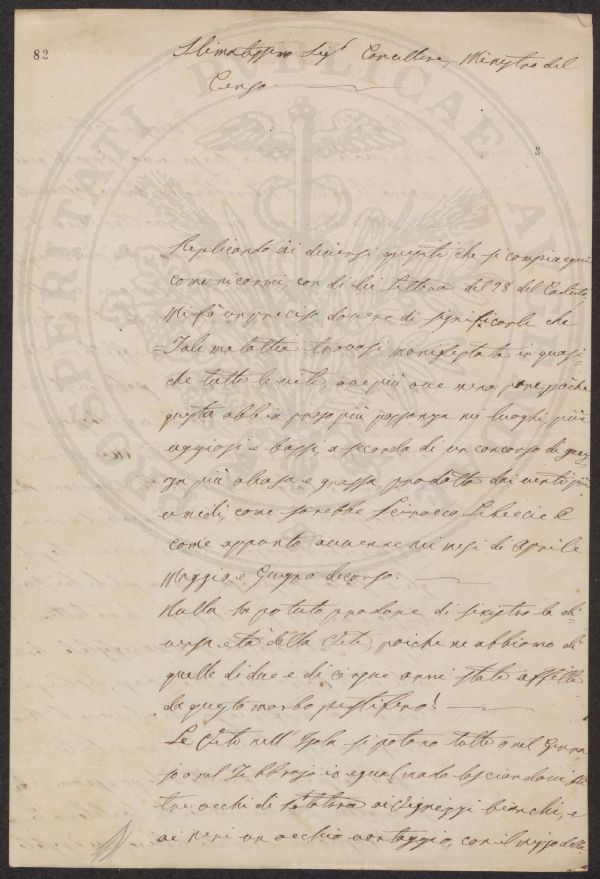 82
Stimatissimo Sigr Cancelliere, Ministro del
Censo.
3
Replicando ai diversi quesiti che si compiacque
comunicarmi con di lei Lettera del 28 del Caduto,
Mi fò un preciso dovere di significarle che
= Tale malattia trovasi manifestata in quasi-
che tutte le viti, ove più ove meno, pare poiche
questa abbia preso più possanza nei luoghi più
uggiosi e bassi, a seconda di un concorso di
più e grassa prodotta dai venti più
umidi, come sarebbe Scirocco Libeccio e
come appunto avvenne nei mesi di Aprile
Maggio e Giugno decorso.
Nulla ha potuto produrre di sinistro la di-
versa età della Vite, poiche ne abbiamo di
quelle di due e di cinque anni state affette
da questo morbo pestifero!
Le Viti nell' Isola si potano tutte o nel Genna-
jo o nel Febbrajo in egual modo lasciandovi
tre occhi di ai bianchi, e
ai neri un occhio vantaggio, con il mezzo della
PROSPERITATI PUBLICAE